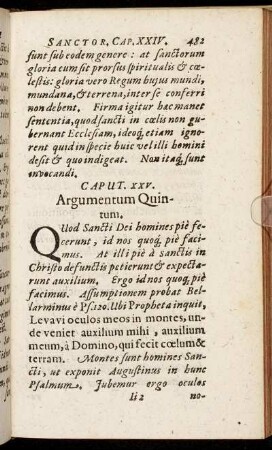 SANCTOR. CAP. XXIV. 482
sunt sub eodem genere : at sanctorum
gloria cum sit prorsus spiritualis & cœ-
lestis: gloria vero Regum hujus mundi,
mundana, & terrena, inter se conferri
non debent. Firma igitur hac manet
sententia, quod sancti in cœlis non gu-
bernant Ecclesiam, ideoq; etiam igno-
rent quid in specie huic vel illi homini
desit & quo indigeat. Non itaq; sunt
invocandi.
CAPUT. XXV.
Argumentum Quin-
tum.
QUod Sancti Dei homines piè fe-
cerunt, id nos quoq; piè faci-
mus. At illi piè à sanctis in
Christo defunctis petierunt & expecta-
runt auxilium. Ergo id nos quoq; piè
facimus. Assumptionem probat Bel-
larminus è Ps. 120. Ubi Propheta inquit,
Levavi oculos meos in montes, un-
de veniet auxilium mihi, auxilium
meum, à Domino, qui fecit cœlum &
terram. Montes sunt homines San-
cti, ut exponit Augustinus in hunc
Psalmum. Jubemur ergo oculos
Ii 2 no-